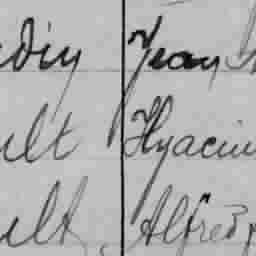 din Jean
ult Hyacin
ult Alfred